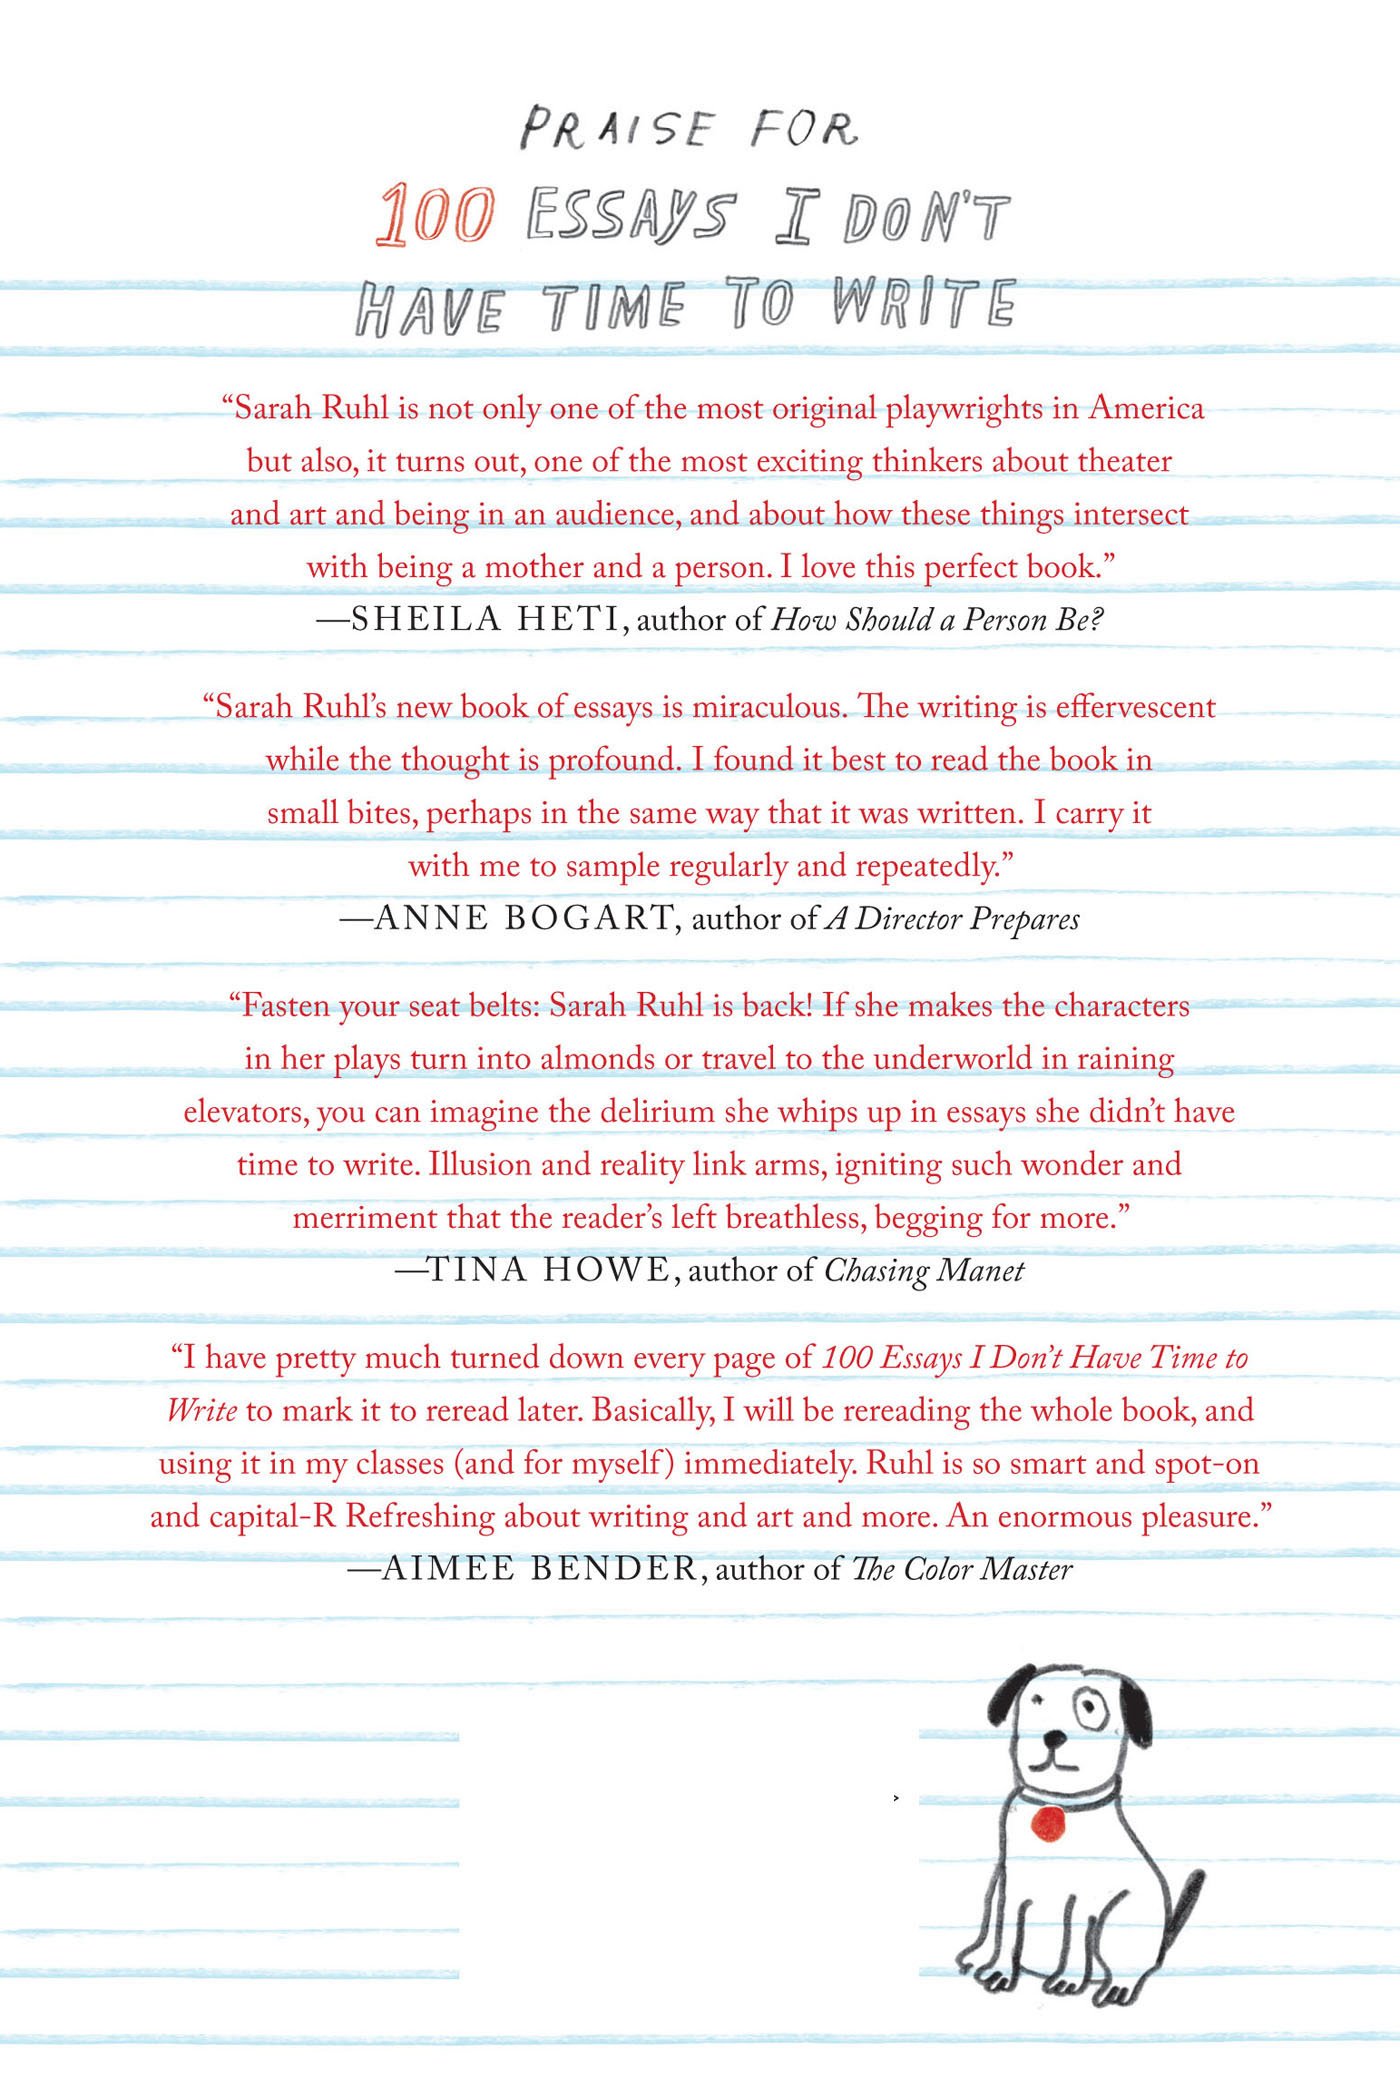 PRAISE FOR
100 ESSAYS I DON'T
HAVE TIME TO WRITE
“Sarah Ruhl is not only one of the most original playwrights in America
but also, it turns out, one of the most exciting thinkers about theater
and art and being in an audience, and about how these things intersect
with being a mother and a person. I love this perfect book.”
—SHEILA HETI, author of How Should a Person Be?
“Sarah Ruhl’s new book of essays is miraculous. The writing is effervescent
while the thought is profound. I found it best to read the book in
small bites, perhaps in the same way that it was written. I carry it
with me to sample regularly and repeatedly.”
—ANNE BOGART, author of A Director Prepares
“Fasten your seat belts: Sarah Ruhl is back! If she makes the characters
in her plays turn into almonds or travel to the underworld in raining
elevators, you can imagine the delirium she whips up in essays she didn’t have
time to write. Illusion and reality link arms, igniting such wonder and
merriment that the reader’s left breathless, begging for more.”
—TINA HOWE, author of Chasing Manet
“I have pretty much turned down every page of 100 Essays I Don’t Have Time to
Write to mark it to reread later. Basically, I will be rereading the whole book, and
using it in my classes (and for myself) immediately. Ruhl is so smart and spot-on
and capital-R Refreshing about writing and art and more. An enormous pleasure.”
—AIMEE BENDER, author of The Color Master
>